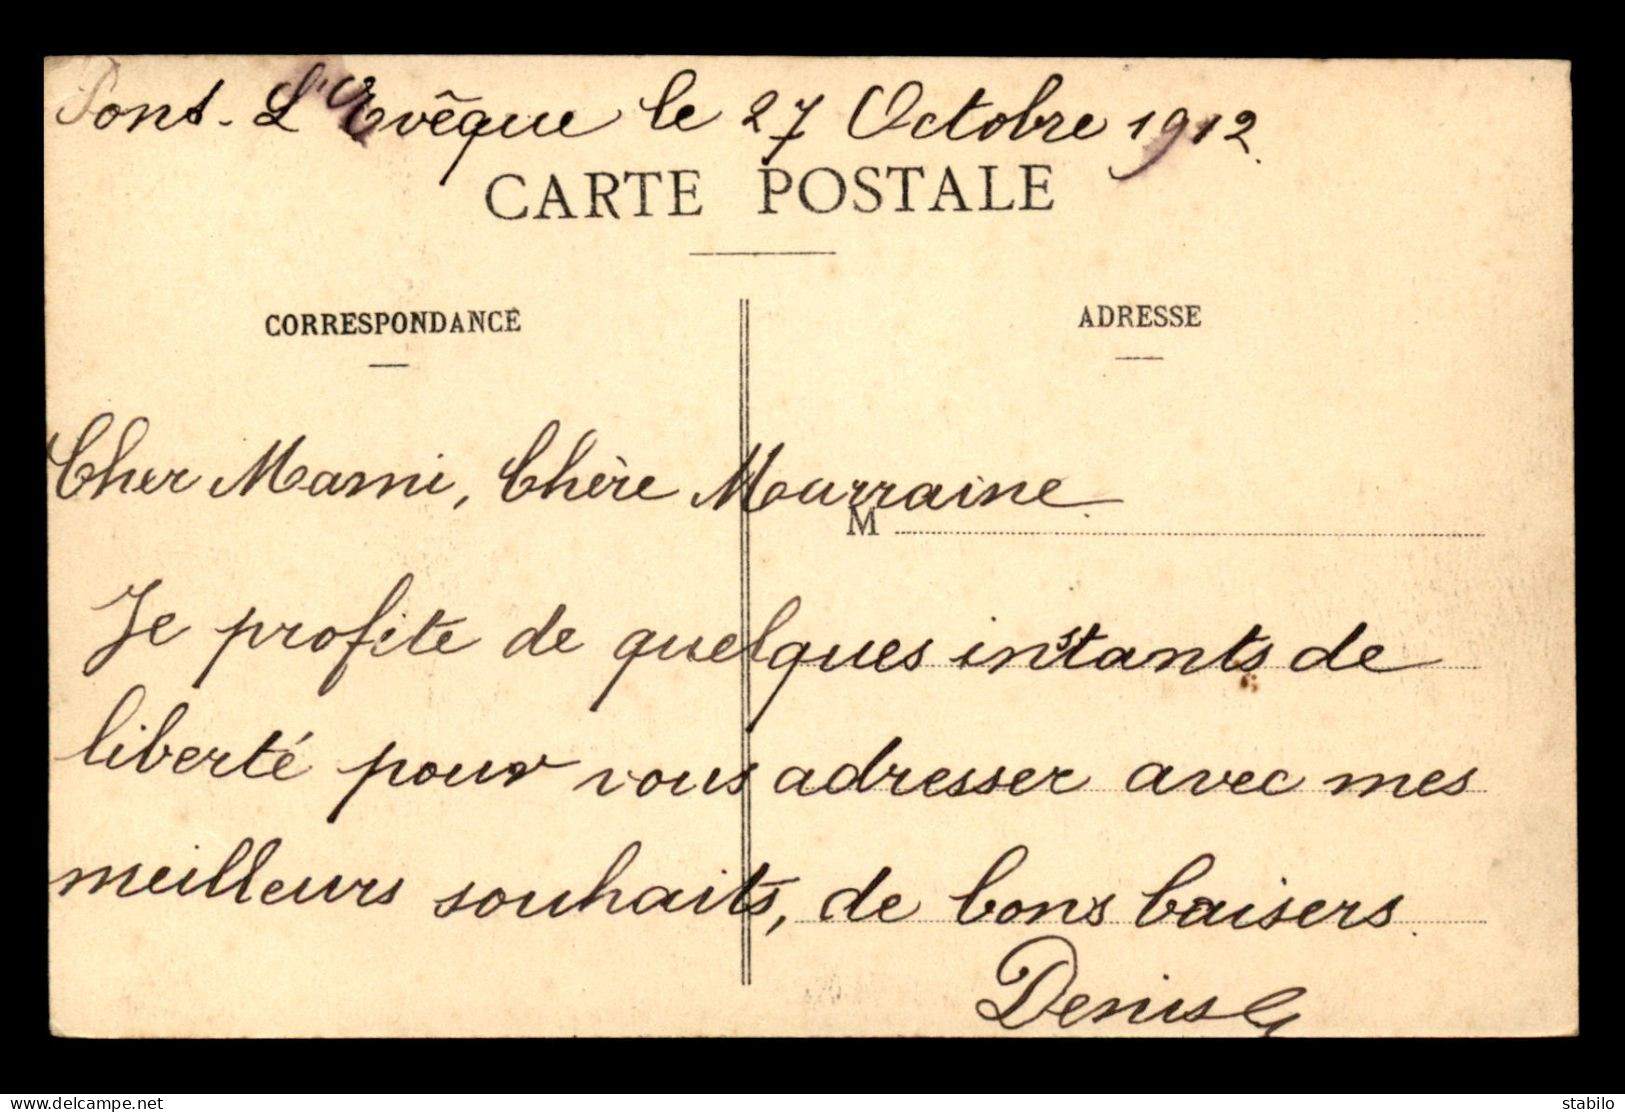 Pont-L'Evêque le 27 Octobre 1912.
CARTE POSTALE
CORRESPONDANCE
ADRESSE
Cher Mami, Chère Mourraine
M
Je profite de quelques instants de
liberté pour vous adresser avec mes
meilleurs souhaits, de bons baisers.
Denise
delcampe.net
stabilo